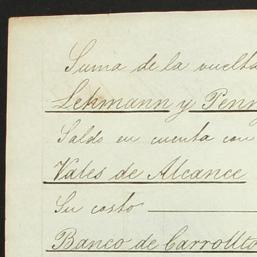 Suma de la vuelta
Lehmann y Penny
Saldo en cuenta con
Vales de Alcance
Su costo
Banco de Carrollto